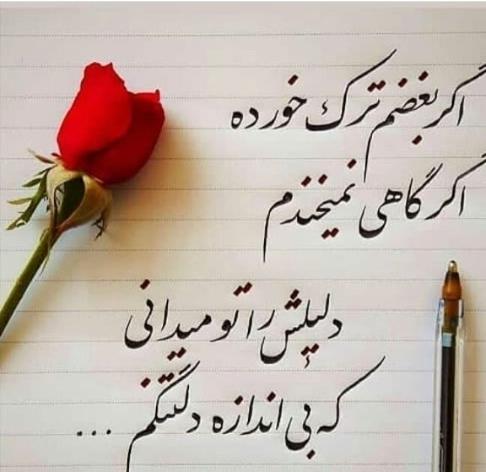 اگر بغضم ترک خورده
اگر گاهی نمیخندم
دلیلش را تو میدانی
که بی اندازه دلتنگم ...